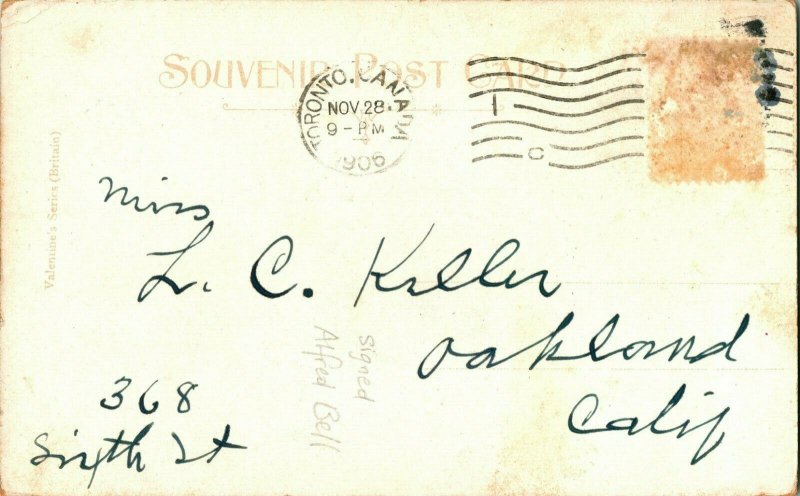 SOUVENIR POST CARD
TORONTO. CANADA
NOV 28
9 - PM
1906
I
C
Valentine's Series (Britain)
Miss
L. C. Keller
Oakland
Calif
368
Sixth St
Signed
Alfred Bell